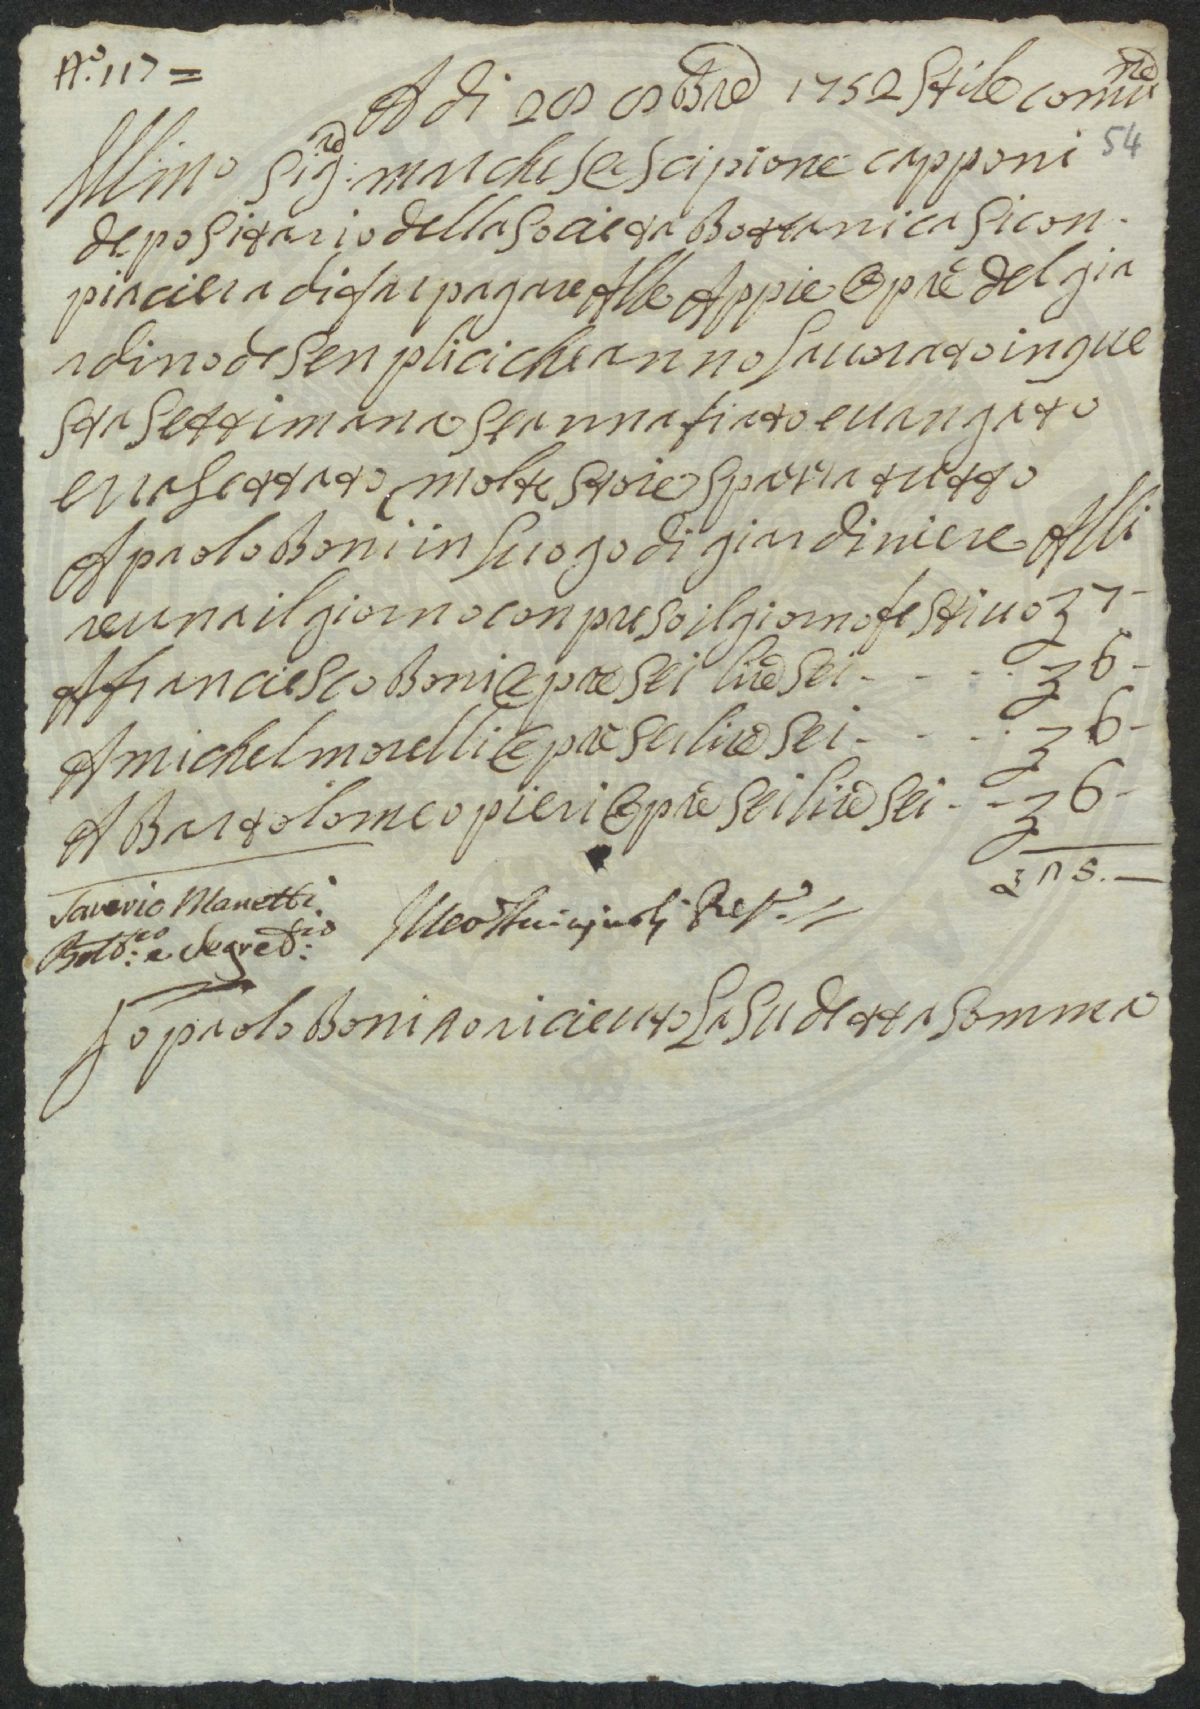 N.o 117 =
A di 28 8bre 1752 Stile comune
54
Illmo Sigre marchese Scipione capponi
depositario della Societa Bottanica Si con
piaciera di far pagare Alle Appie Opre del gia
rdino de Senplici che anno lauorato in que
sta Settimana Se annafiato e uangato
e rasettato molte stoie Sparra tutto
A paolo Boni in luogo di giardiniere Alli
re una il giorno conpreso il giorno festiuo 7 -
A franciesco Boni Opre Sei lire Sei - - - - 6 -
A michel morelli Opre Sei lire Sei - - - - 6 -
A Bartolomeo pieri Opre Sei lire Sei - - 6 -
Saverio Manetti
Botco: e Segretrio:
Io paolo Boni o riceuto La Sudetta Somma